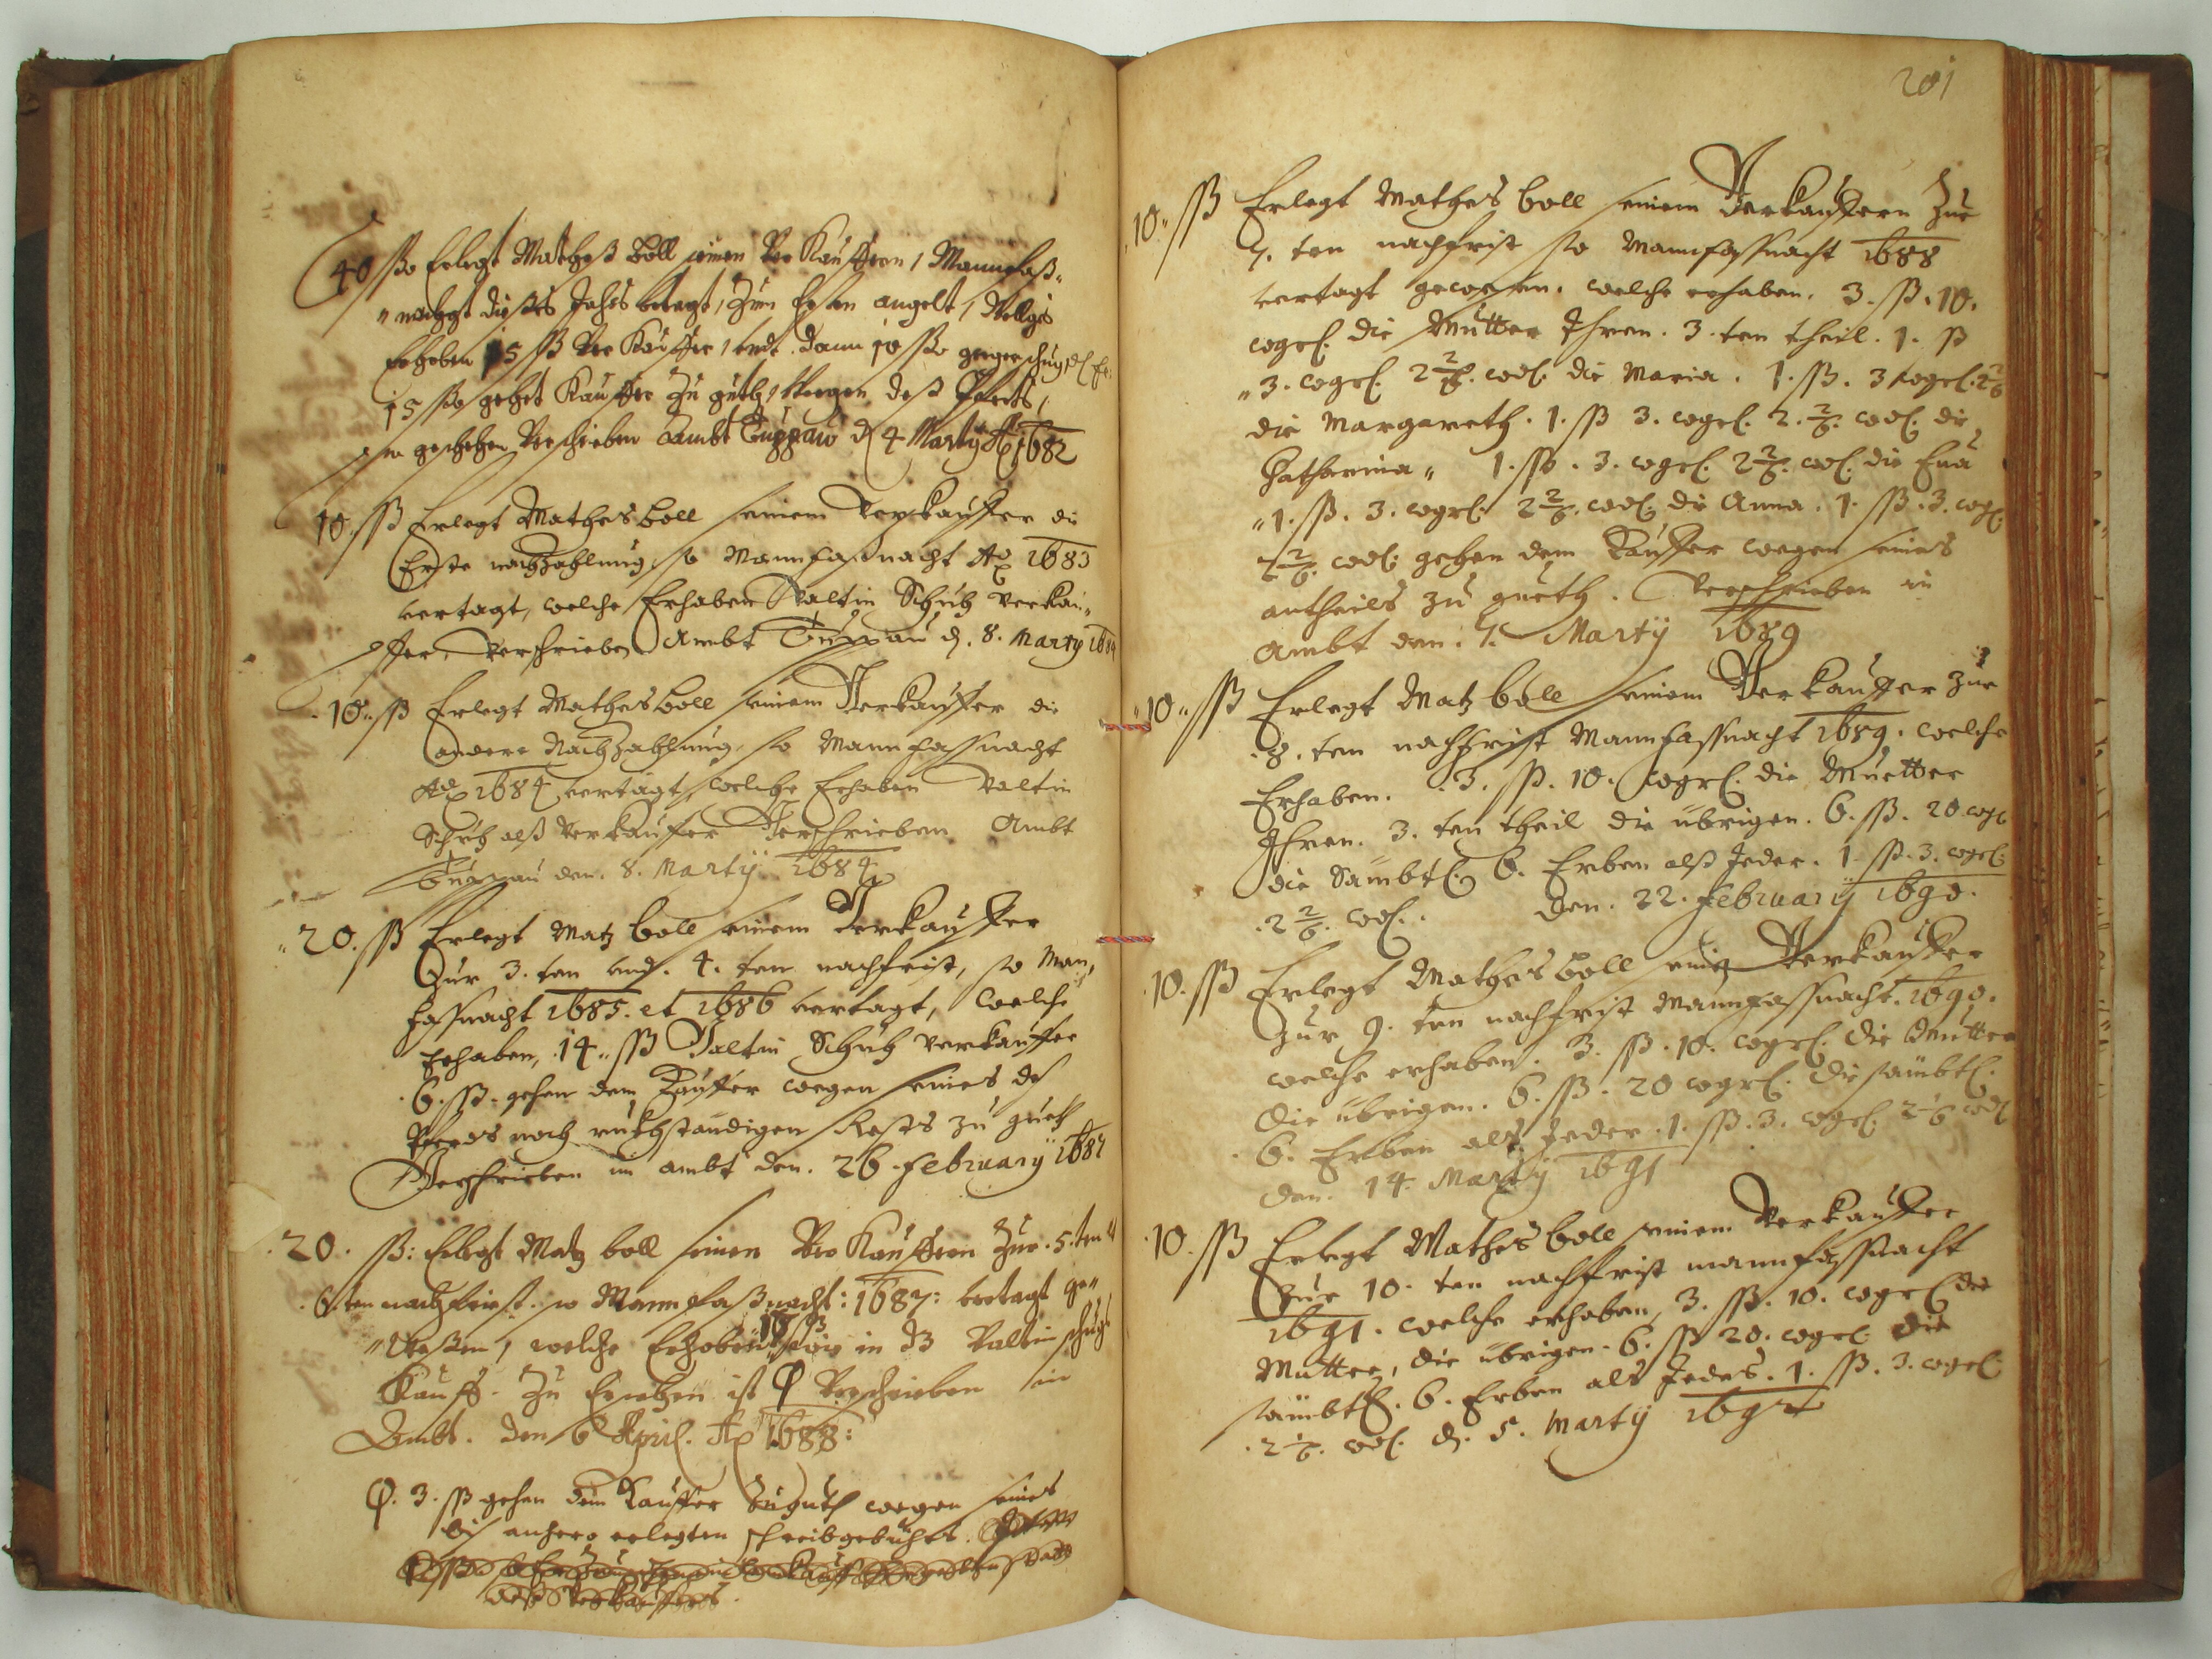 40 ßo Erlegt Matheß Boll seinen Ver Kauffern, Mannfaß„
„nacht dießes Jahrs betagt, Zum Ersten angelt,
Erhoben 15 ßß Ver Kauffer, undt dann 10 ßo
15 ßo gehet Kauffer Zu guth, wegen deß Pferdts,
geschehen Verschrieben Ambt Duppau d 4 Martÿ Ao 1682
10. ßß Erlegt Mathes Boll seinem Verkauffer die
Erste nachzahlung, so Mannfaßnacht Ao 1683
vertagt, welche Erhaben Valtin Schuh Verkau„
ffer, Verschrieben Ambt Duppau d. 8. Marty 1684
10. ßß Erlegt Mathes Boll seinem Verkauffer die
andere Nachzahlung, so Mannfassnacht
Ao 1684 vertagt, welche Erhaben Valtin
Schuh alß Verkauffer Verschrieben Ambt
Duppau den. 8. Martÿ 1684
20. ßß Erlegt Matz Boll seinem Verkauffer
Zur 3. ten undt. 4. ten nachfrist, so Man„
fassnacht 1685. et 1686 vertagt, welche
Erhaben, 14„ ßß Valtin Schuh Verkauffer
6. ßß. gehen dem Kauffer wegen seines deß
Pferds noch ruckständigen Rests zu gueth
Verschrieben im ambt den. 26. februarÿ 1687
20. ß: Erlegt Matz Boll seinen Ver Kauffern Zur. 5. ten u
6 ten nachfrist. so Mannfaßnacht: 1687: vertagt ge„
„weßen, welche Erhoben 10 ß wie in d3 Valtin Schuhs
Kauff. Zu Ersehen ist Verschrieben im
Ambt. den 6 April. Ao 1688:
3. ßß gehen dem Kauffer Zuguth wegen seines
biß anhero erlegten schreibgebührs.
201
10„ ßß Erlegt Mathes Boll seinem Verkauffern Zur
7. ten nachfrist so Mannfassnacht 1688
vertagt gewesen. welche erhaben. 3. ßß. 10.
wgrl. die Mutter Ihren. 3. ten theil. 1. ß
„3. wgrl. 2 2/6. wdl. die Maria. 1. ßß. 3 wgrl. 2 2/6
die Margareth. 1. ßß 3. wgrl. 2. 2/6. wdl. die
Catharina„ 1. ßß. 3. wgrl. 2 2/6. wdl. die Eua
„1. ßß. 3. wgrl. 2 2/6. wdl. die Anna. 1. ßß. 3. wgrl.
2 2/6. wdl. gehen dem Kauffer wegen seines
antheils zu gueth. Verschrieben im
Ambt den. 7. Martÿ 1689
10„ ßß Erlegt Matz Boll seinem Verkauffer zur
8. ten nachfrist Mannfassnacht 1689. welche
Erhaben. 3. ßß. 10. wgrl. die Muetter
Ihren. 3. ten theil die übrigen. 6. ßß. 20 wgl
die Sämbtl. 6. Erben alß Jeder. 1. ßß. 3. wgrl.
2 2/6. wdl. den. 22. februarÿ 1690.
10. ßß Erlegt Mathes Boll seinem Verkauffer
zur 9. ten nachfrist Mannfassnacht. 1690.
welche erhaben. 3. ßß. 10. wgrl. die Mutter
die übrigen. 6. ßß. 20 wgrl. die sämbtl.
6. Erben alß Jeder. 1. ßß. 3. wgrl. 2 2/6 wdl
den. 14. Martÿ 1691
10. ßß Erlegt Mathes Boll seinem Verkauffer
Zur 10. ten nachfrist mannfassnacht
1691. welche erhaben, 3. ßß. 10. wgrl die
Mutter, die übrigen. 6. ßß 20. wgrl die
sämbtl. 6. Erben alß Jedes. 1. ßß. 3. wgrl
2 2/6. wdl. d. 5. Martÿ 1692